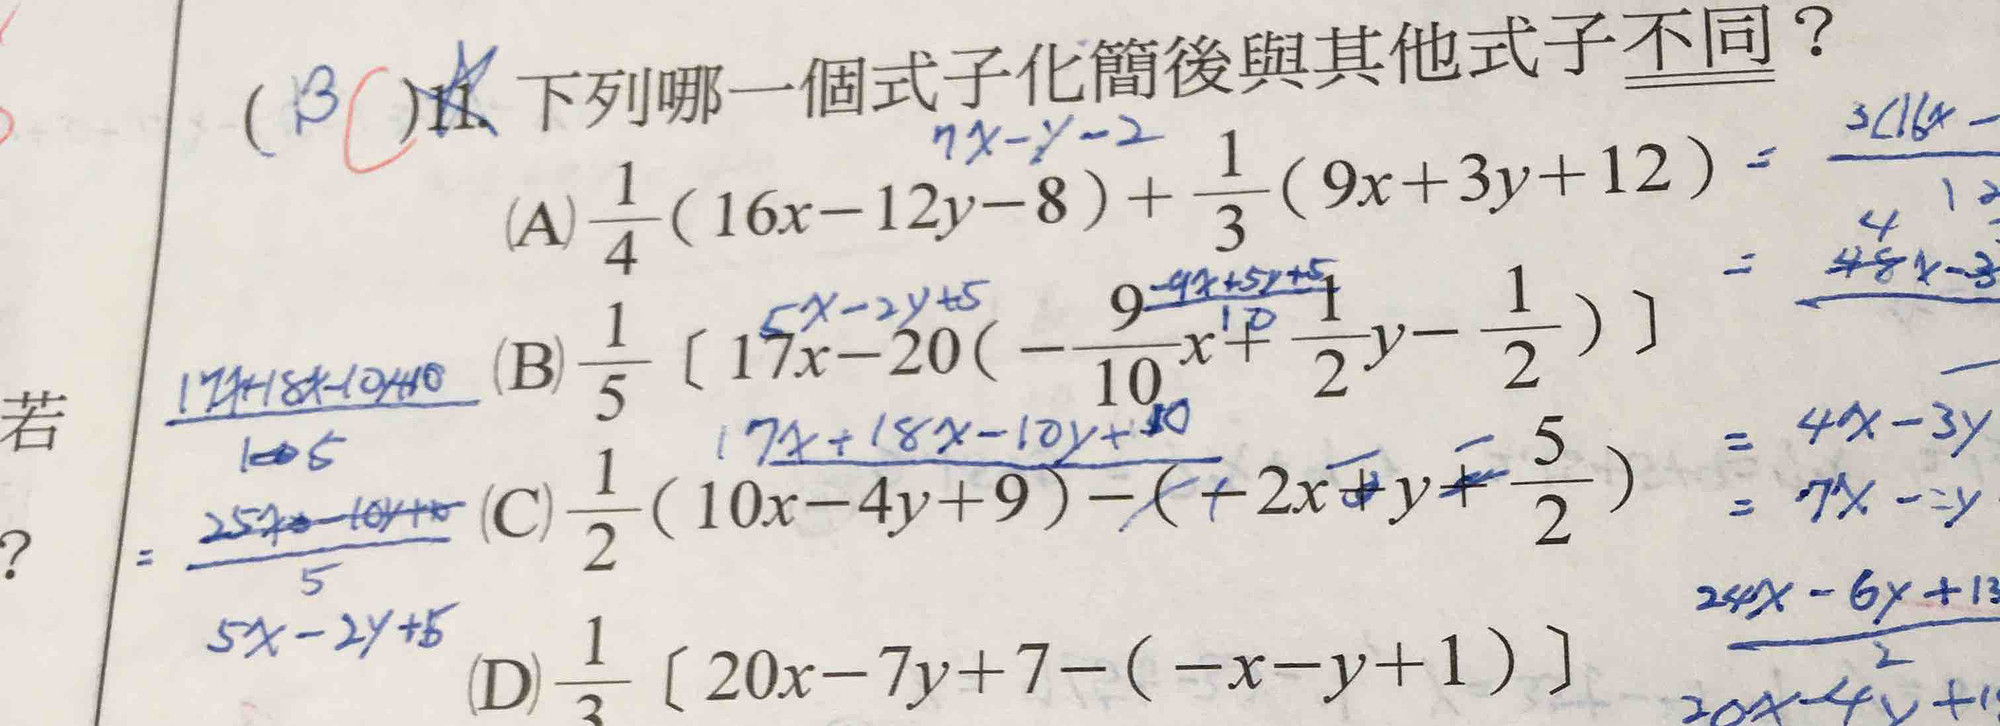 ( B )11. 下列哪一個式子化簡後與其他式子不同？
7x-y-2
3(16x-
(A) 1/4 (16x-12y-8)+ 1/3 (9x+3y+12) =
12
4
= 48x-3
5x-2y+5
-9x+5y+5
10
(B) 1/5 〔17x-20(- 9/10 x+ 1/2 y- 1/2 )〕
若
17x+18x-10y+10
5
17x+18x-10y+10
= 4x-3y
(C) 1/2 (10x-4y+9)-(-2x+y+ 5/2 )
= 7x-y
?
= 25x-10y+
5
24x-6y+13
2
5x-2y+5
(D) 1/3 〔20x-7y+7-(-x-y+1)〕
20x-4y+1